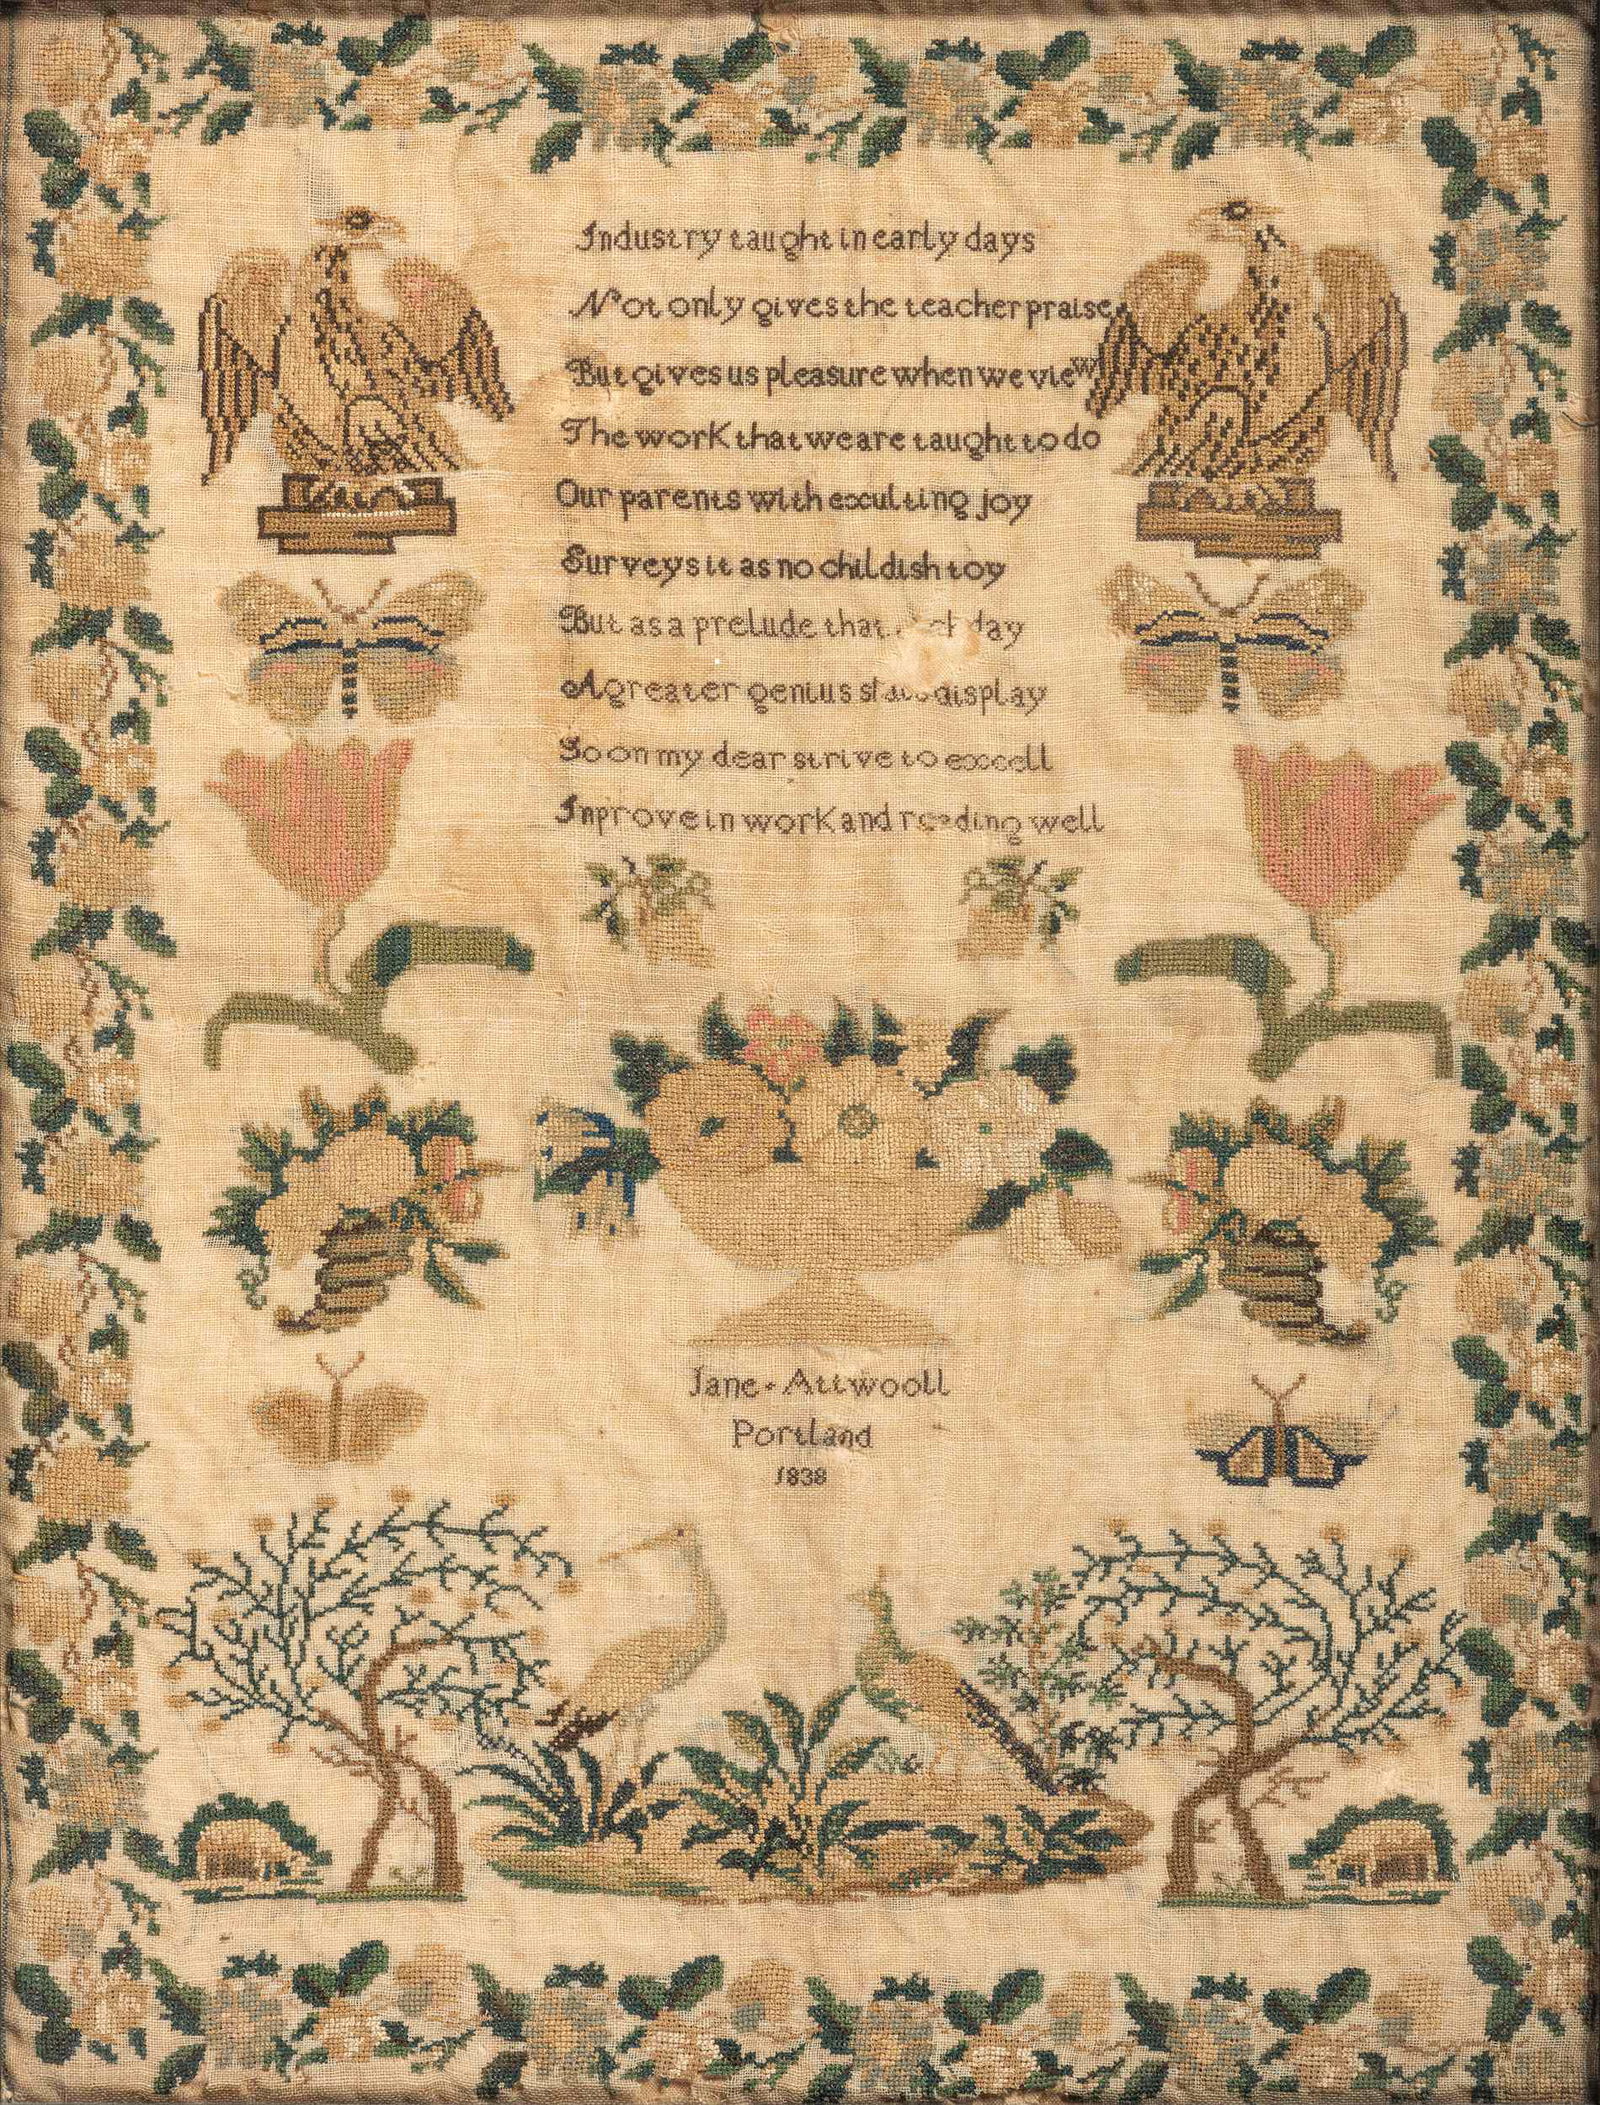 Industry taught in early days
Not only gives the teacher praise
But gives us pleasure when we view
The work that we are taught to do
Our parents with exculting joy
Surveys it as no childish toy
But as a prelude that day
A greater genius display
So on my dear strive to excell
Inprove in work and reading well
Jane Attwooll
Portland
1838